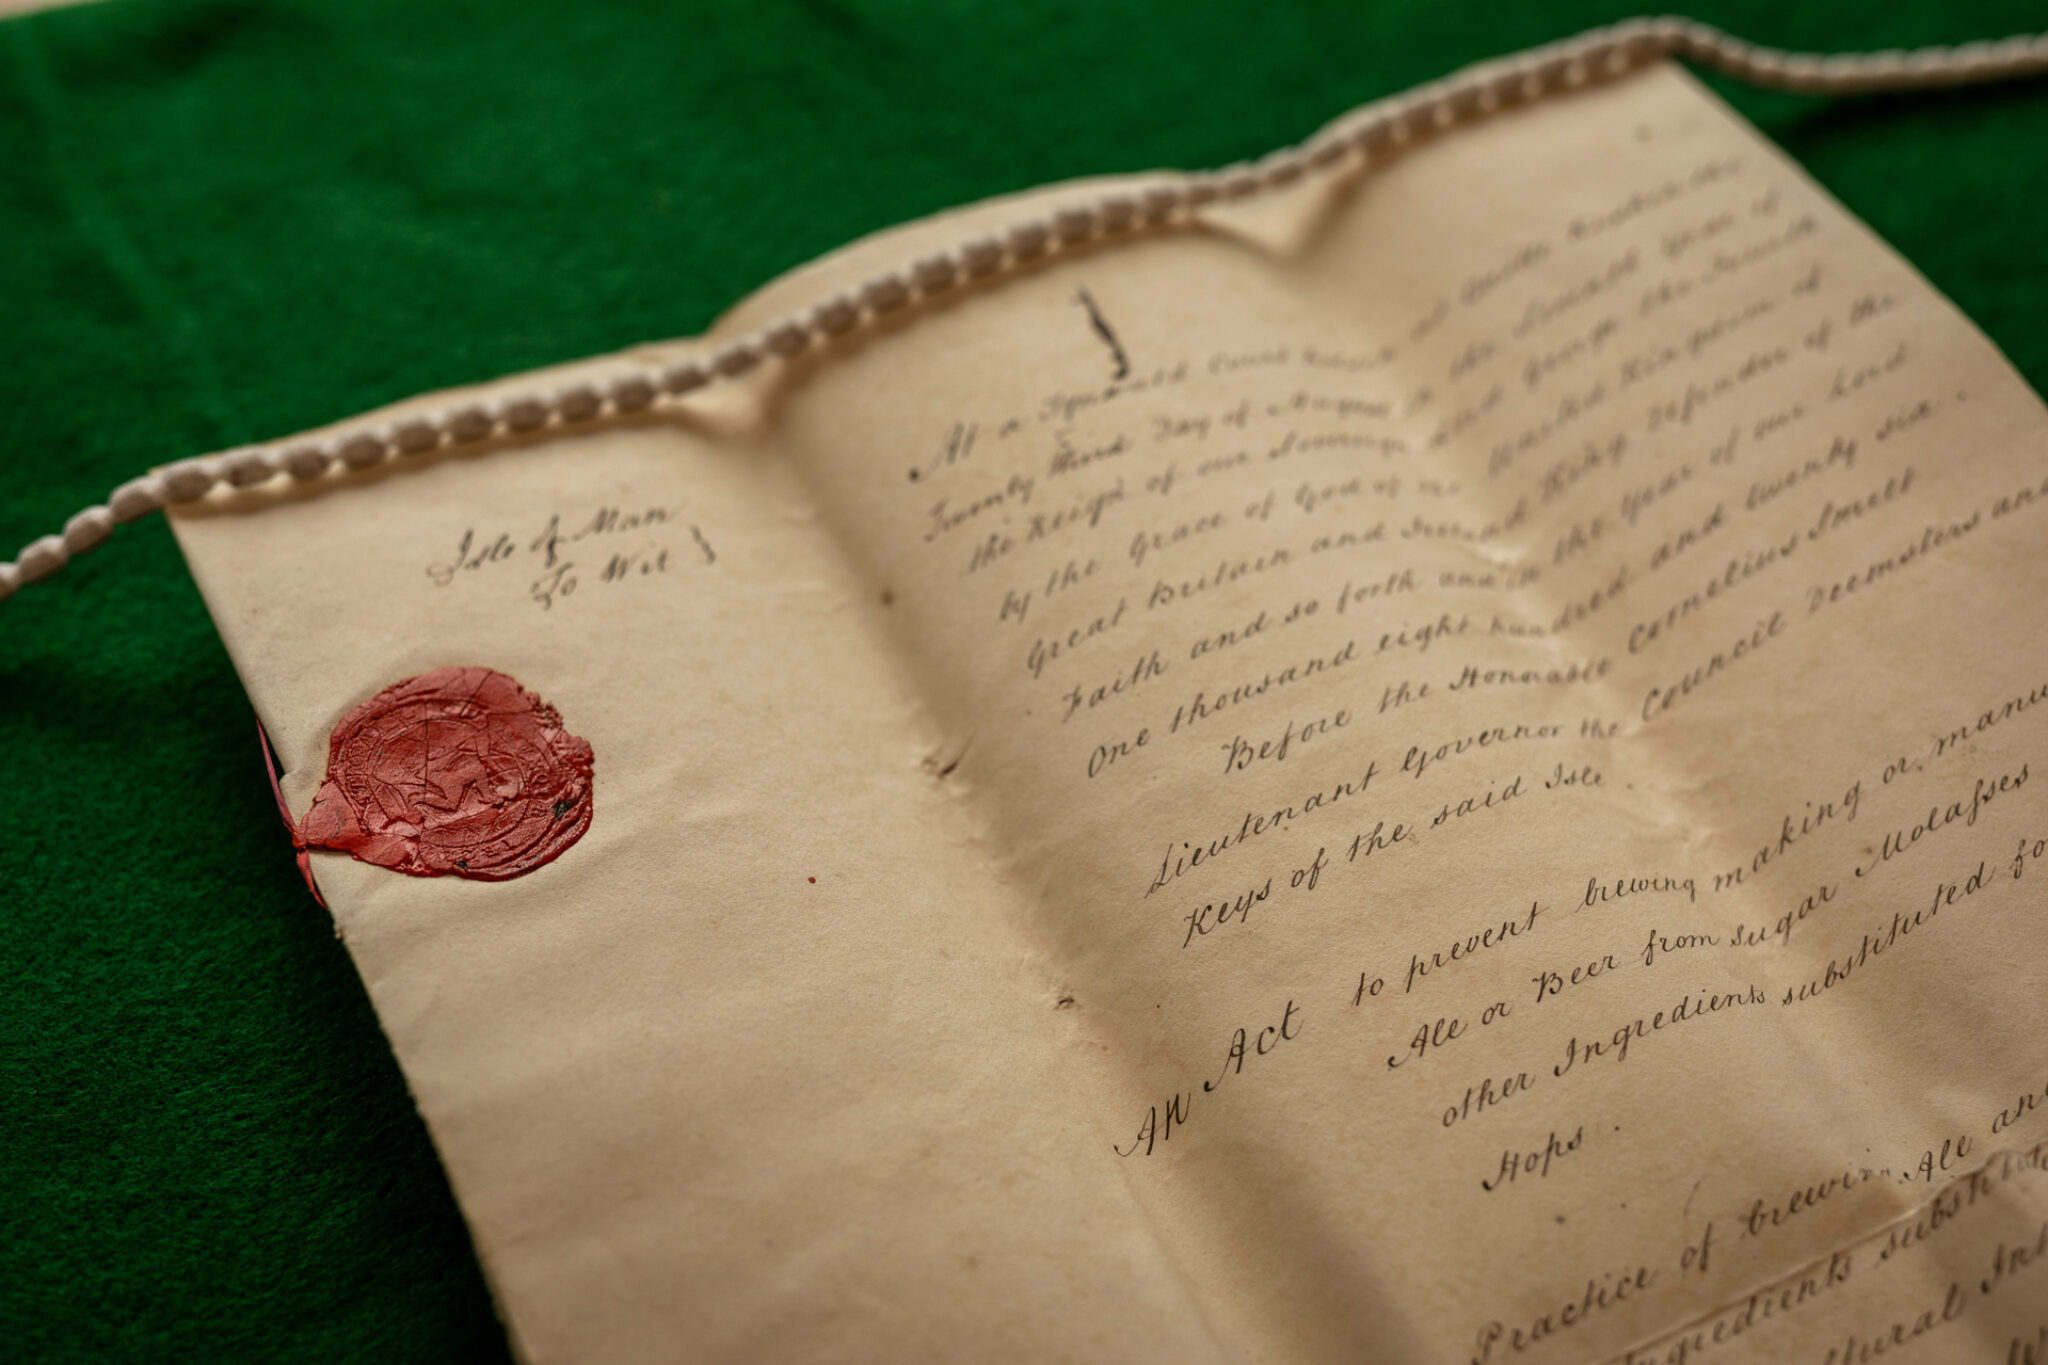 Isle of Man
To Wit }
At a Tynwald Court holden at Castle Rushen the
Twenty third Day of August in the Seventh Year of
the Reign of our Sovereign Lord George the Fourth
by the Grace of God of the United Kingdom of
Great Britain and Ireland King Defender of the
Faith and so forth and in the Year of our Lord
One thousand eight hundred and twenty six.
Before the Honorable Cornelius Smelt
Lieutenant Governor the Council Deemsters and
Keys of the said Isle.
An Act to prevent brewing making or manu
Ale or Beer from sugar Molaſses
other Ingredients substituted fo
Hops.
Practice of brewing Ale and
ngredients substitute
ltural Int